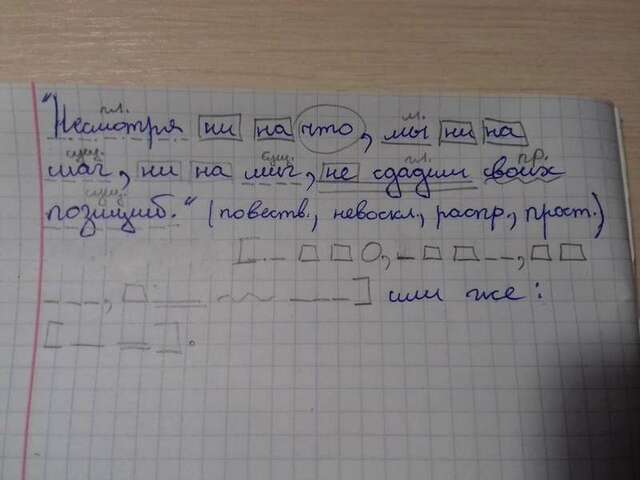 гл. м.
"Несмотря ни на что, мы ни на
сущ. сущ. гл. пр.
шаг, ни на миг, не сдадим своих
сущ.
позиций." (повеств., невоскл., распр., прост.)
или же: